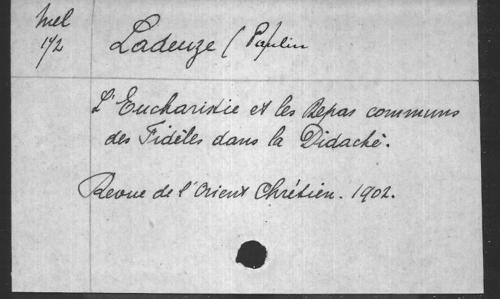 Mel
172
Ladeuze (Paulin
L'Eucharistie et les Repas communs
des Fidèles dans la Didachè.
Revue de l'Orient Chrétien. 1902.